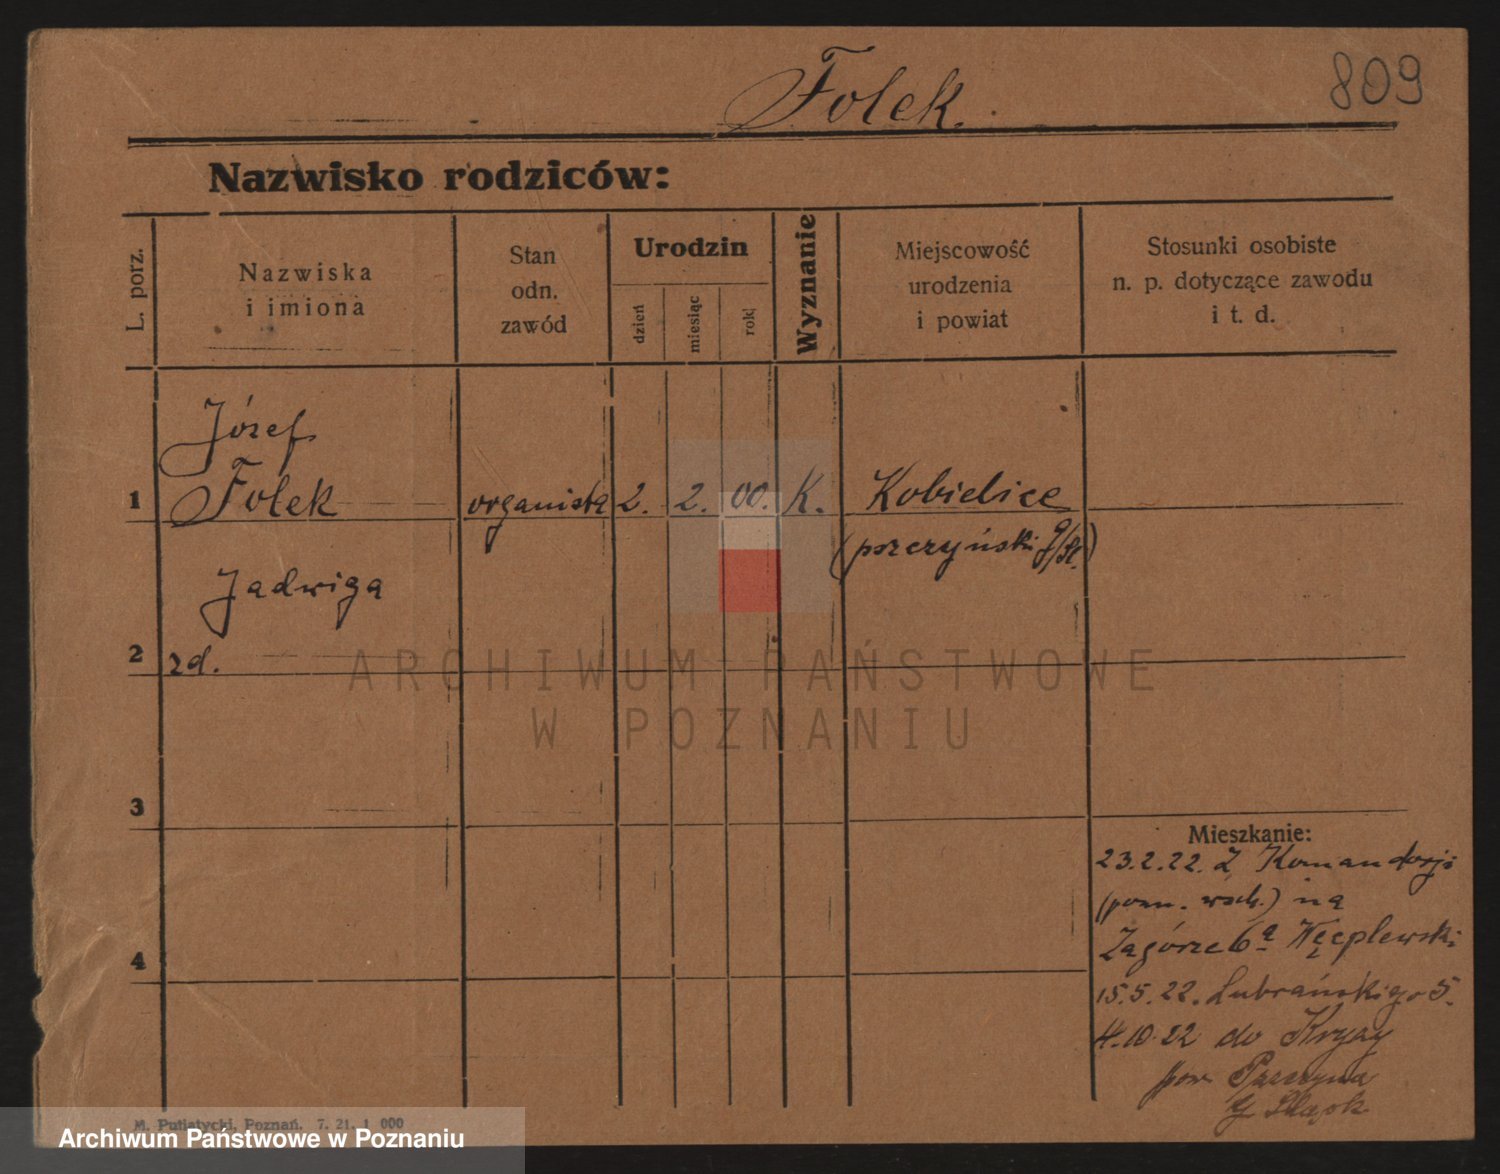 Folek.
809
Nazwisko rodziców:
L. porz.
Nazwiska
i imiona
Stan
odn.
zawód
Urodzin
dzień
miesiąc
rok
Wyznanie
Miejscowość
urodzenia
i powiat
Stosunki osobiste
n. p. dotyczące zawodu
i t. d.
Józef
1 Folek organista 2. 2. 00. K. Kobielice
(pszczyński g/Śl.)
Jadwiga
2 zd.
3
Mieszkanie:
23.2.22. Z Komandorji
(pozn. wsch.) na
4 Zagórze 6a
15.5.22. Lubrańskiego 5.
4.10.22 do Kryry
pow Pszczyna
G Śląsk
M. Putiatycki, Poznań. 7. 21. 1 000
ARCHIWUM PAŃSTWOWE
W POZNANIU
Archiwum Państwowe w Poznaniu